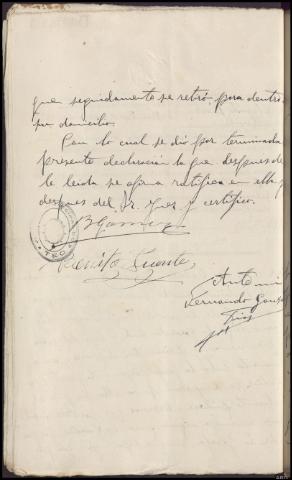 que seguidamente se retiró para dentro
su domicilio.
Con lo cual se dió por terminada
presente declaracion la que despues de
le leida se afirma ratifica en ella y
despues del Sr. Juez y certifico.
Benito Puente
Antonio
Fernando Gonz